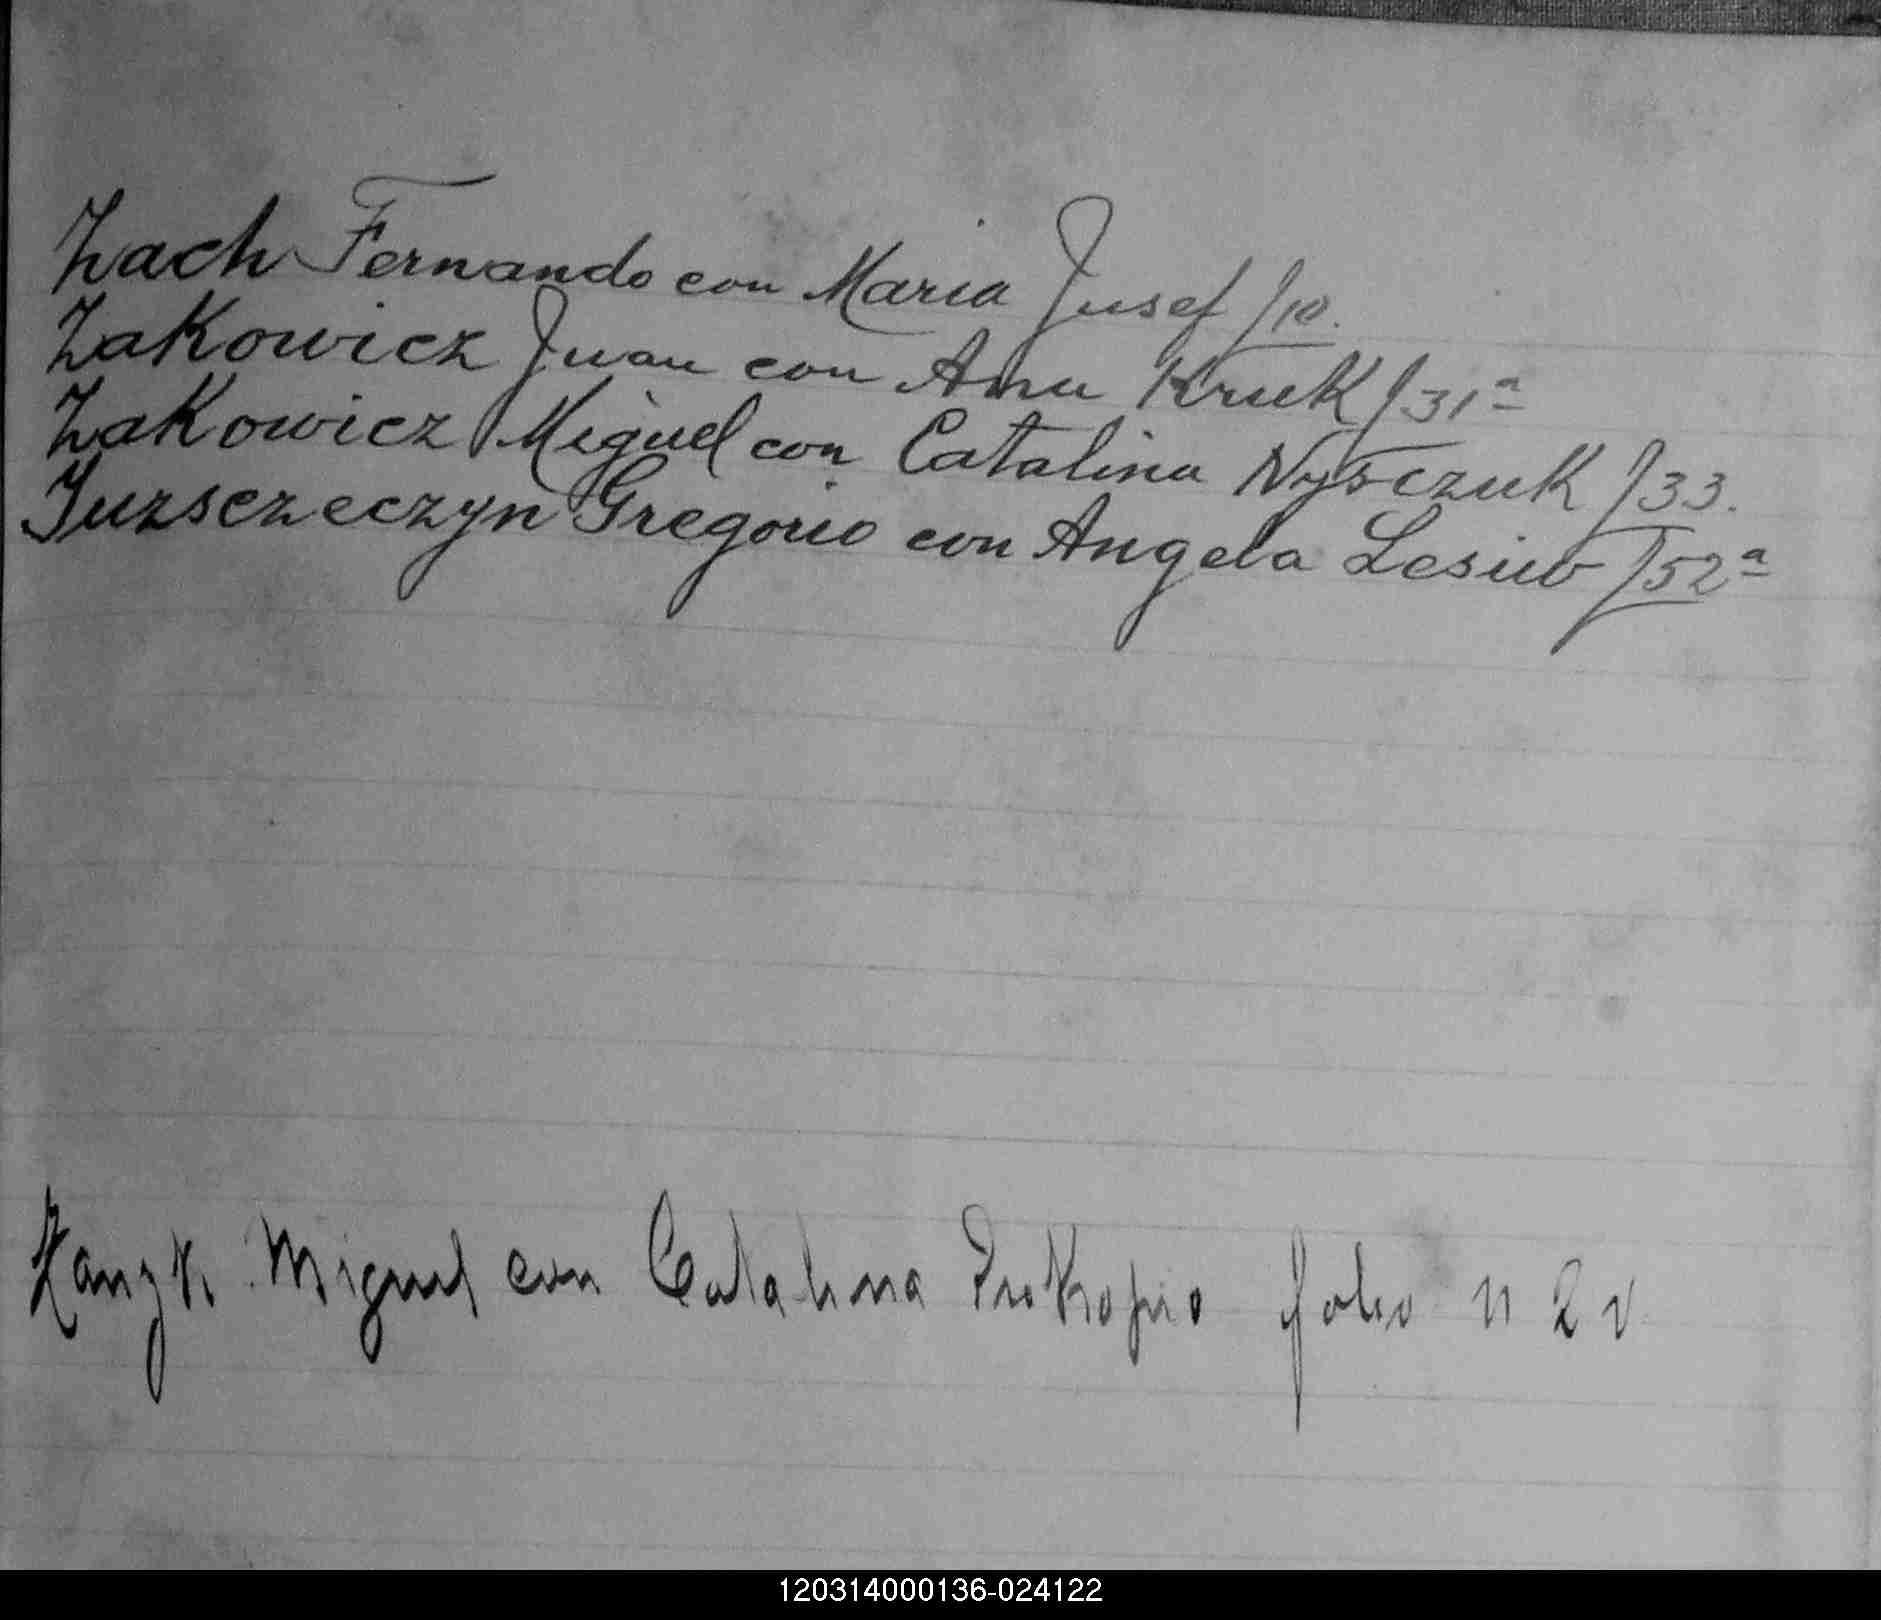 Zach Fernando con Maria Jusef f 10.
Zakowicz Juan con Ana Kruk f 31ª
Zakowicz Miguel con Catalina Nysczuk f 33.
Juzsczeczyn Gregorio con Angela Lesiw f 52ª
Miguel con Catalina Prokopio folio n 2 v
120314000136-024122